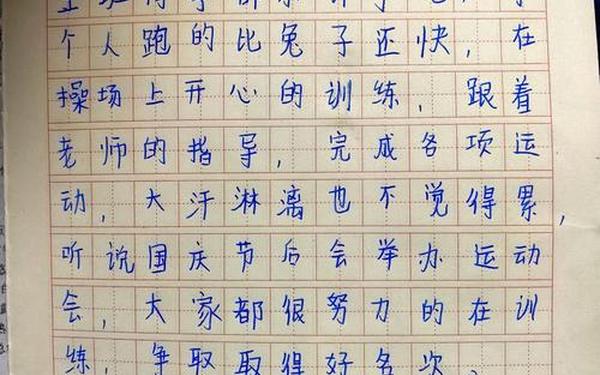 个人跑的比兔子还快,在
操场上开心的训练,跟着
老师的指导,完成各项运
动,大汗淋漓也不觉得累,
听说国庆节后会举办运动
会,大家都很努力的在训
练,争取取得好名次.